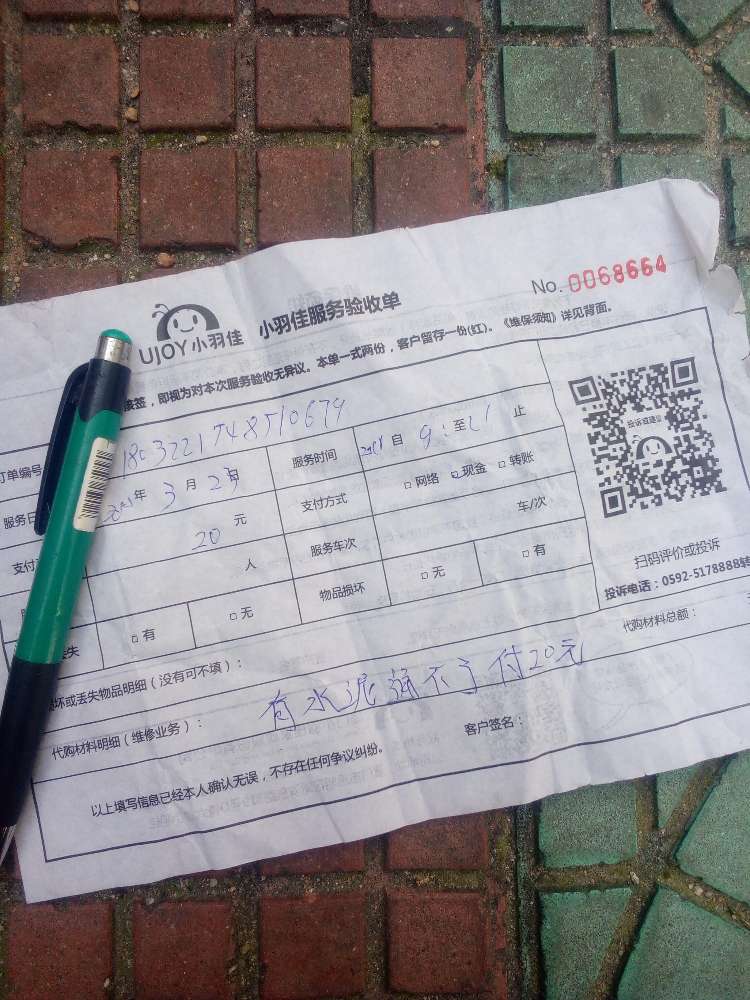 UJOY小羽佳 小羽佳服务验收单 No. 0068664
接签，即视为对本次服务验收无异议。本单一式两份，客户留存一份(红)。《维保须知》详见背面。
订单编号 服务时间 自 9: 至 止
服务日 年 3 月 支付方式 □网络 ☑现金 □转账
支付 20 元 服务车次 车/次
人 物品损坏 □无 □有
丢失 □有 □无
投诉或建议
扫码评价或投诉
投诉电话：0592-5178888转
损坏或丢失物品明细（没有可不填）： 代购材料总额：
代购材料明细（维修业务）： 有水泥 不了付20元
以上填写信息已经本人确认无误，不存在任何争议纠纷。 客户签名：